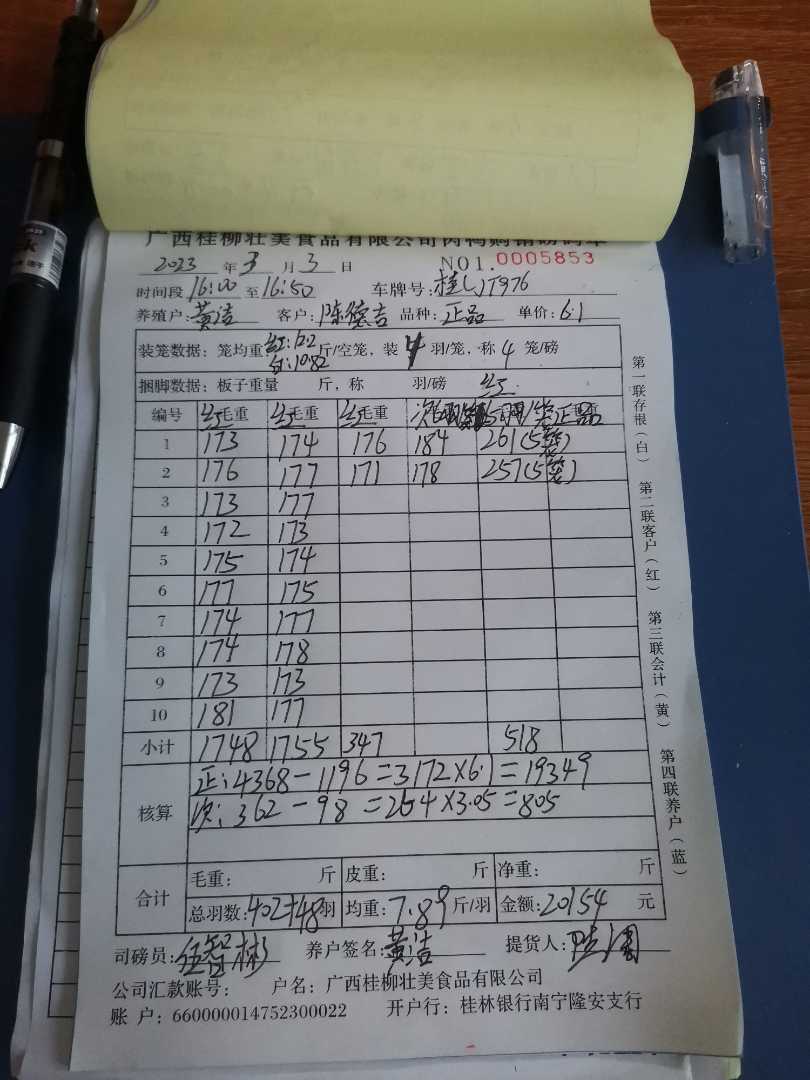 广西桂柳壮美食品有限公司肉鸭购销磅码单
2023 年 3 月 3 日 NO1. 0005853
时间段 16:00 至 16:50 车牌号: 桂LJT976
养殖户: 黄洁 客户: 陈德吉 品种: 正品 单价: 6.1
装笼数据: 笼均重 红:12.2 白:10.82 斤/空笼, 装 4 羽/笼, 称 4 笼/磅
捆脚数据: 板子重量 斤, 称 羽/磅 红
编号 红毛重 红毛重 红毛重 次 正品
1 173 174 176 184 261(5袋)
2 176 177 171 178 257(5袋)
3 173 177
4 172 173
5 175 174
6 177 175
7 174 177
8 174 178
9 173 173
10 181 177
小计 1748 1755 347 518
核算 正: 4368-1196=3172×6.1=19349
次: 362-98=264×3.05=805
合计 毛重: 斤 皮重: 斤 净重: 斤
总羽数: 402+48羽 均重: 7.89 斤/羽 金额: 20154 元
司磅员: 智彬 养户签名: 黄洁 提货人:
公司汇款账号: 户名: 广西桂柳壮美食品有限公司
账 户: 660000014752300022 开户行: 桂林银行南宁隆安支行
第一联存根(白) 第二联客户(红) 第三联会计(黄) 第四联养户(蓝)